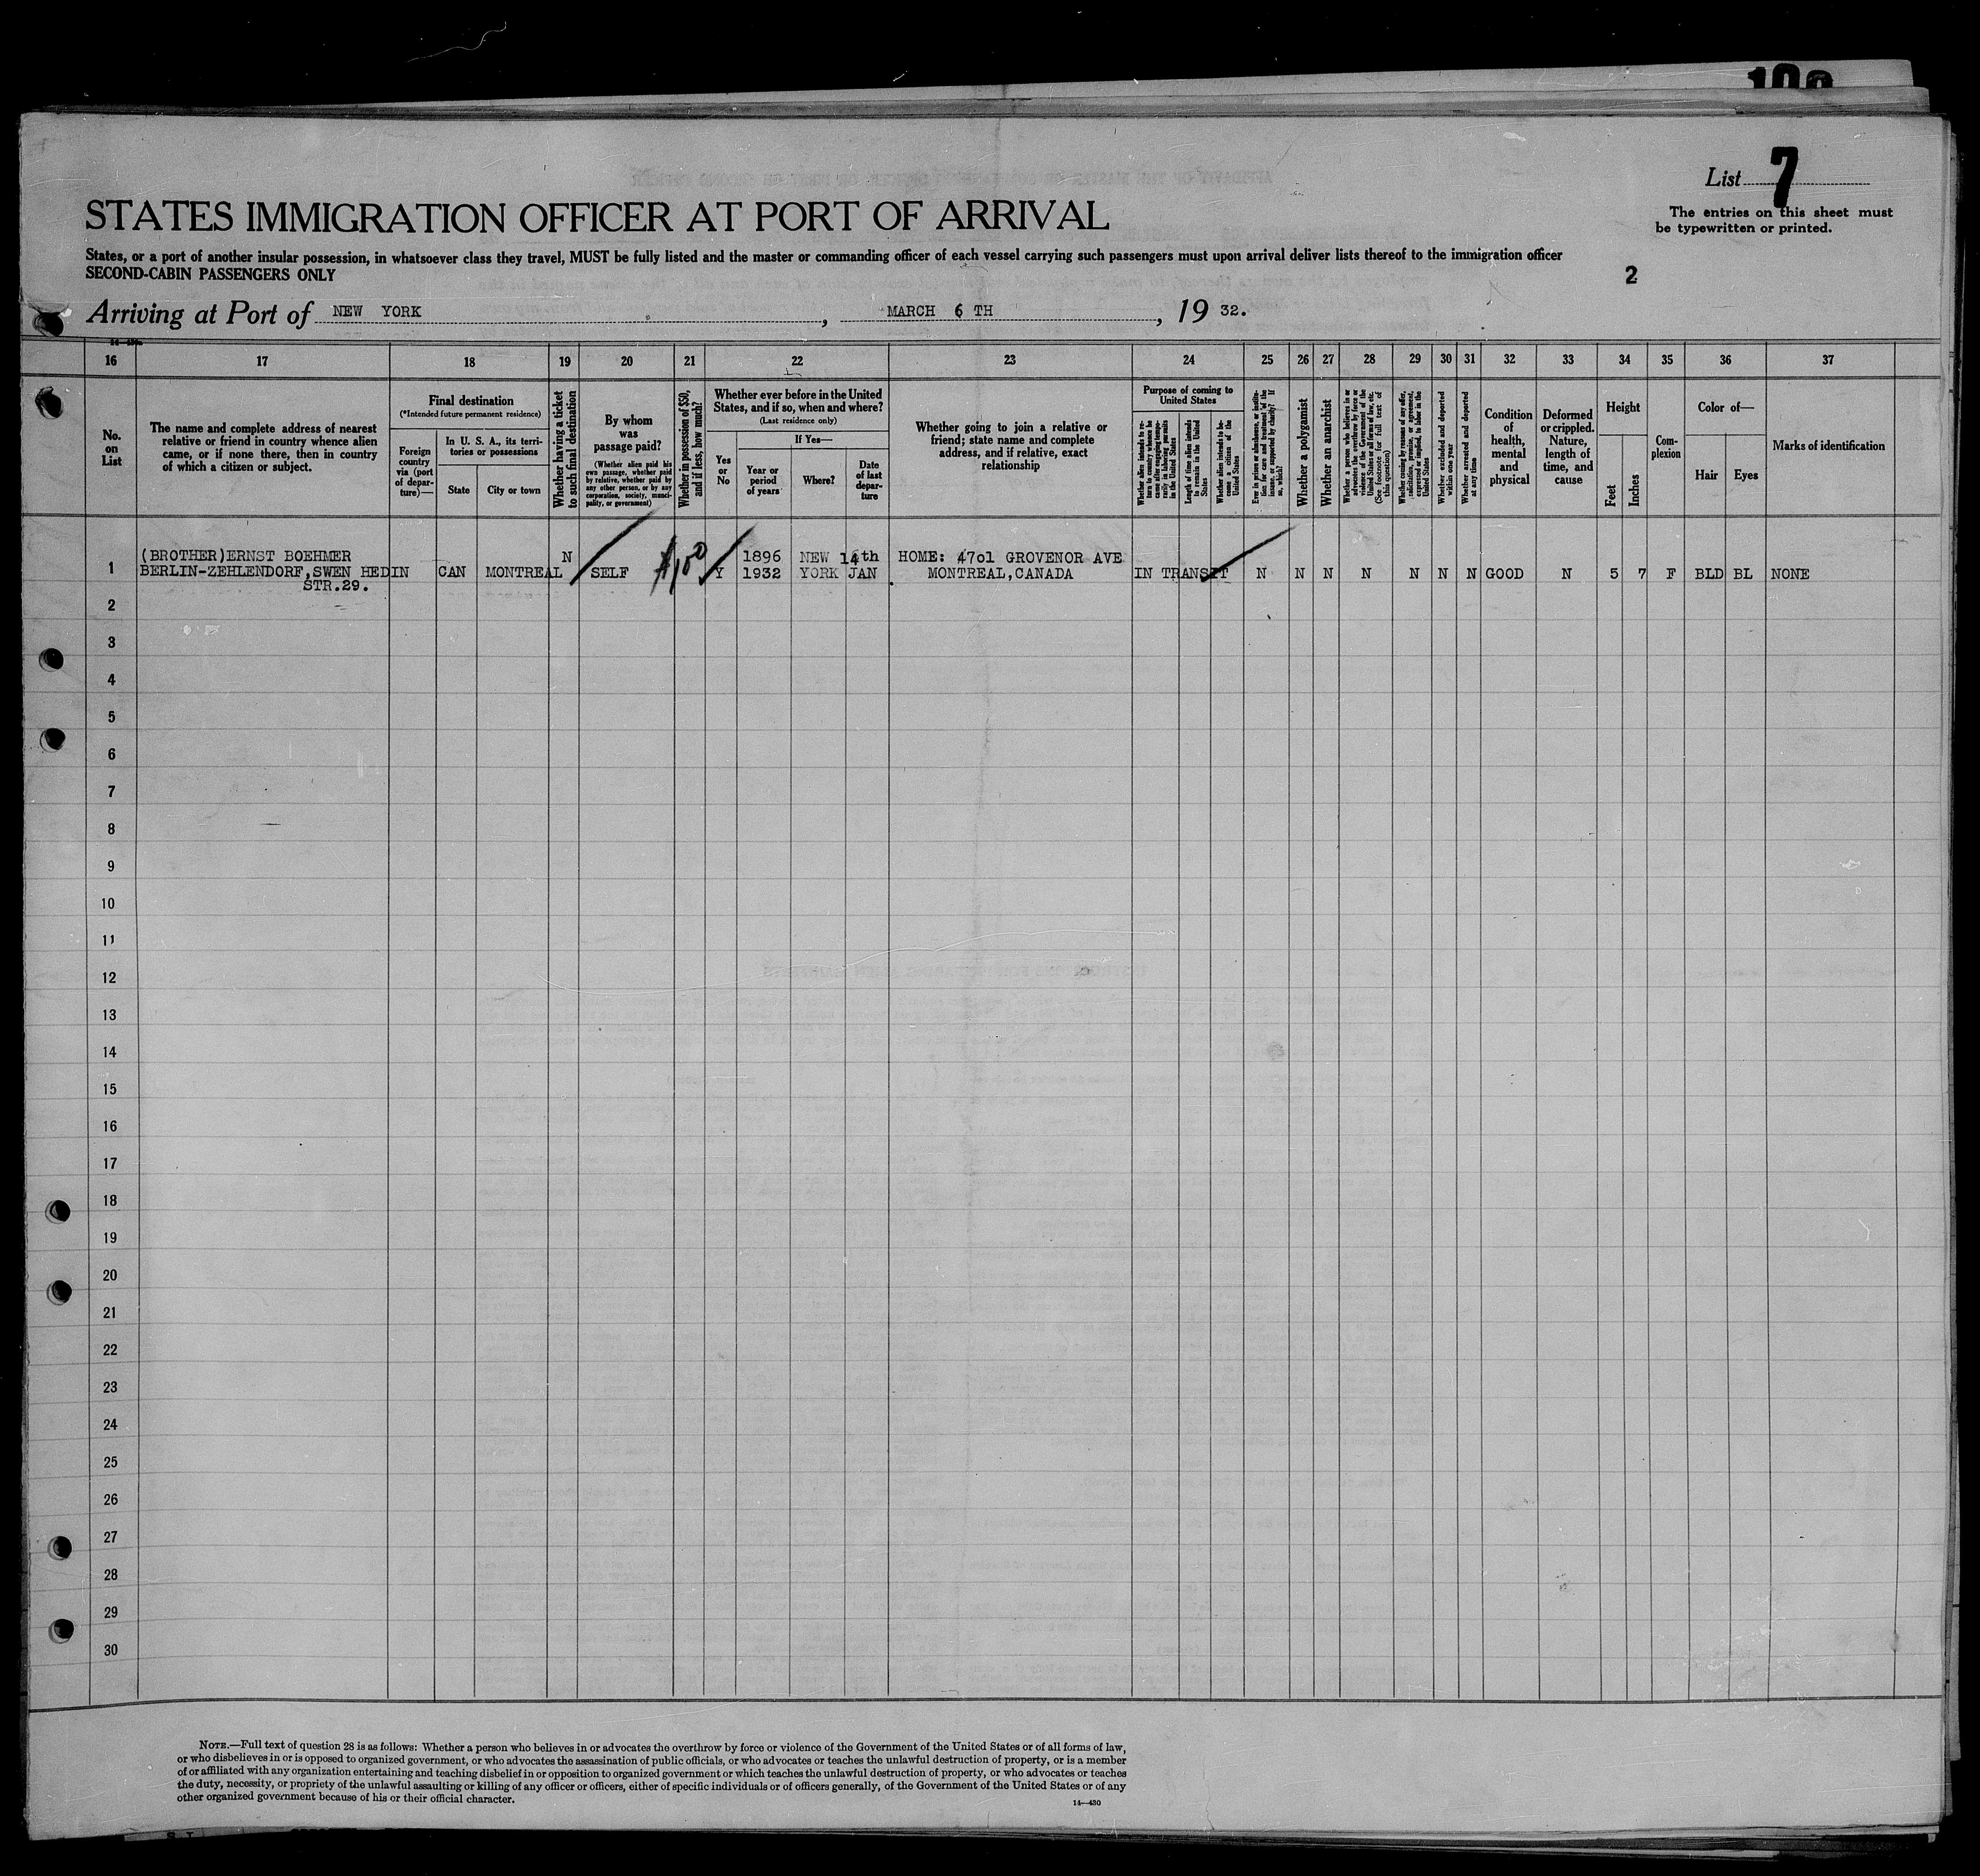 List 7
The entries on this sheet must
be typewritten or printed.
STATES IMMIGRATION OFFICER AT PORT OF ARRIVAL
States, or a port of another insular possession, in whatsoever class they travel, MUST be fully listed and the master or commanding officer of each vessel carrying such passengers must upon arrival deliver lists thereof to the immigration officer
SECOND-CABIN PASSENGERS ONLY
2
Arriving at Port of NEW YORK, MARCH 6 TH, 19 32.
16 17 18 19 20 21 22 23 24 25 26 27 28 29 30 31 32 33 34 35 36 37
No.
on
List
The name and complete address of nearest
relative or friend in country whence alien
came, or if none there, then in country
of which a citizen or subject.
Final destination
(*Intended future permanent residence)
Foreign
country
via (port
of depar-
ture)—
In U. S. A., its terri-
tories or possessions
State
City or town
Whether having a ticket
to such final destination
By whom
was
passage paid?
(Whether alien paid his
own passage, whether paid
by relative, whether paid by
any other person, or by any
corporation, society, munici-
pality, or government)
Whether in possession of $50,
and if less, how much?
Whether ever before in the United
States, and if so, when and where?
(Last residence only)
Yes
or
No
If Yes—
Year or
period
of years
Where?
Date
of last
depar-
ture
Whether going to join a relative or
friend; state name and complete
address, and if relative, exact
relationship
Purpose of coming to
United States
Whether alien intends to re-
turn to country whence he
came after engaging tempo-
rarily in laboring pursuits
in the United States
Length of time alien intends
to remain in the United
States
Whether alien intends to be-
come a citizen of the
United States
Ever in prison or almshouse, or institu-
tion for care and treatment of the
insane, or supported by charity? If
so, which?
Whether a polygamist
Whether an anarchist
Whether a person who believes in or
advocates the overthrow by force or
violence of the Government of the
United States or all forms of law, etc.
(See footnote for full text of
this question)
Whether coming by reason of any offer,
solicitation, promise, or agreement,
expressed or implied, to labor in the
United States
Whether excluded and deported
within one year
Whether arrested and deported
at any time
Condition
of
health,
mental
and
physical
Deformed
or crippled.
Nature,
length of
time, and
cause
Height
Feet
Inches
Com-
plexion
Color of—
Hair
Eyes
Marks of identification
(BROTHER)ERNST BOEHMER N 1896 NEW 14th HOME: 47o1 GROVENOR AVE
1 BERLIN-ZEHLENDORF,SWEN HEDIN CAN MONTREAL SELF Y 1932 YORK JAN MONTREAL,CANADA IN TRANSIT N N N N N N N GOOD N 5 7 F BLD BL NONE
STR.29.
2
3
4
5
6
7
8
9
10
11
12
13
14
15
16
17
18
19
20
21
22
23
24
25
26
27
28
29
30
NOTE.—Full text of question 28 is as follows: Whether a person who believes in or advocates the overthrow by force or violence of the Government of the United States or of all forms of law,
or who disbelieves in or is opposed to organized government, or who advocates the assassination of public officials, or who advocates or teaches the unlawful destruction of property, or is a member
of or affiliated with any organization entertaining and teaching disbelief in or opposition to organized government or which teaches the unlawful destruction of property, or who advocates or teaches
the duty, necessity, or propriety of the unlawful assaulting or killing of any officer or officers, either of specific individuals or of officers generally, of the Government of the United States or of any
other organized government because of his or their official character.
14—430